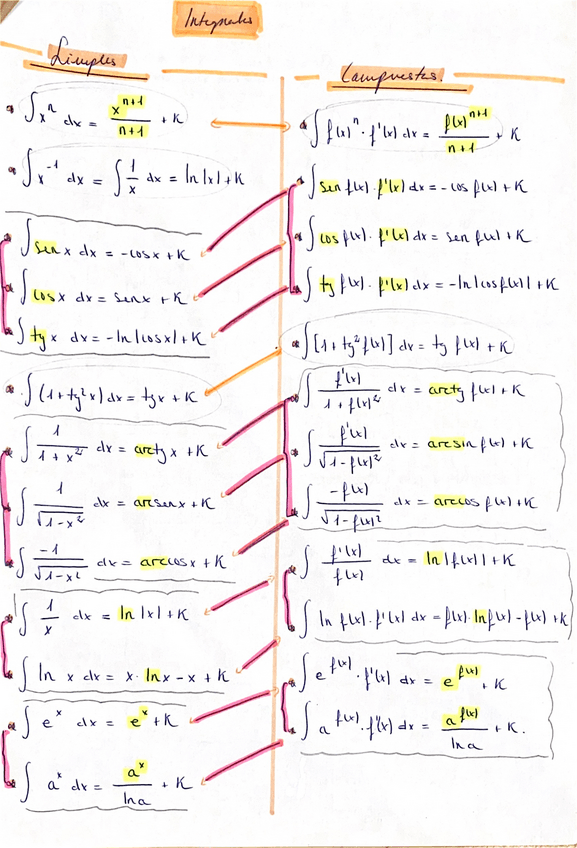 Integrales
Simples
∫ xⁿ dx = xⁿ⁺¹/(n+1) + K
∫ x⁻¹ dx = ∫ 1/x dx = ln|x| + K
∫ sen x dx = -cosx + K
∫ cos x dx = senx + K
∫ tg x dx = -ln|cosx| + K
∫ (1+tg²x) dx = tgx + K
∫ 1/(1+x²) dx = arctg x + K
∫ 1/√(1-x²) dx = arcsenx + K
∫ -1/√(1-x²) dx = arccosx + K
∫ 1/x dx = ln|x| + K
∫ ln x dx = x·lnx - x + K
∫ eˣ dx = eˣ + K
∫ aˣ dx = aˣ/lna + K
Compuestas.
∫ f(x)ⁿ · f'(x) dx = f(x)ⁿ⁺¹/(n+1) + K
∫ sen f(x) · f'(x) dx = -cos f(x) + K
∫ cos f(x) · f'(x) dx = sen f(x) + K
∫ tg f(x) · f'(x) dx = -ln|cosf(x)| + K
∫ [1+tg² f(x)] dx = tg f(x) + K
∫ f'(x)/(1+f(x)²) dx = arctg f(x) + K
∫ f'(x)/√(1-f(x)²) dx = arcsin f(x) + K
∫ -f(x)/√(1-f(x)²) dx = arccos f(x) + K
∫ f'(x)/f(x) dx = ln|f(x)| + K
∫ ln f(x) · f'(x) dx = f(x)·lnf(x) - f(x) + K
∫ e^f(x) · f'(x) dx = e^f(x) + K
∫ a^f(x) · f'(x) dx = a^f(x)/lna + K.